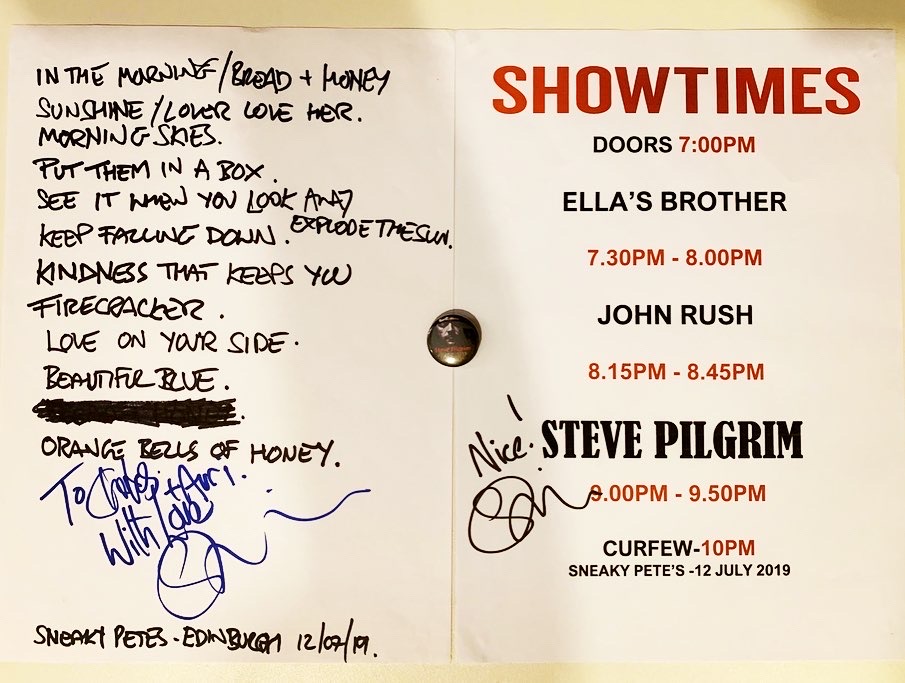 IN THE MORNING/BREAD + HONEY
SUNSHINE/LOVER LOVE HER.
MORNING SKIES.
PUT THEM IN A BOX.
SEE IT WHEN YOU LOOK AWAY
KEEP FALLING DOWN. EXPLODE THE SUN.
KINDNESS THAT KEEPS YOU
FIRECRACKER.
LOVE ON YOUR SIDE.
BEAUTIFUL BLUE.
ORANGE BELLS OF HONEY.
To
With Love
SNEAKY PETES - EDINBURGH 12/07/19.
SHOWTIMES
DOORS 7:00PM
ELLA'S BROTHER
7.30PM - 8.00PM
JOHN RUSH
8.15PM - 8.45PM
Nice!
STEVE PILGRIM
9.00PM - 9.50PM
CURFEW-10PM
SNEAKY PETE'S -12 JULY 2019